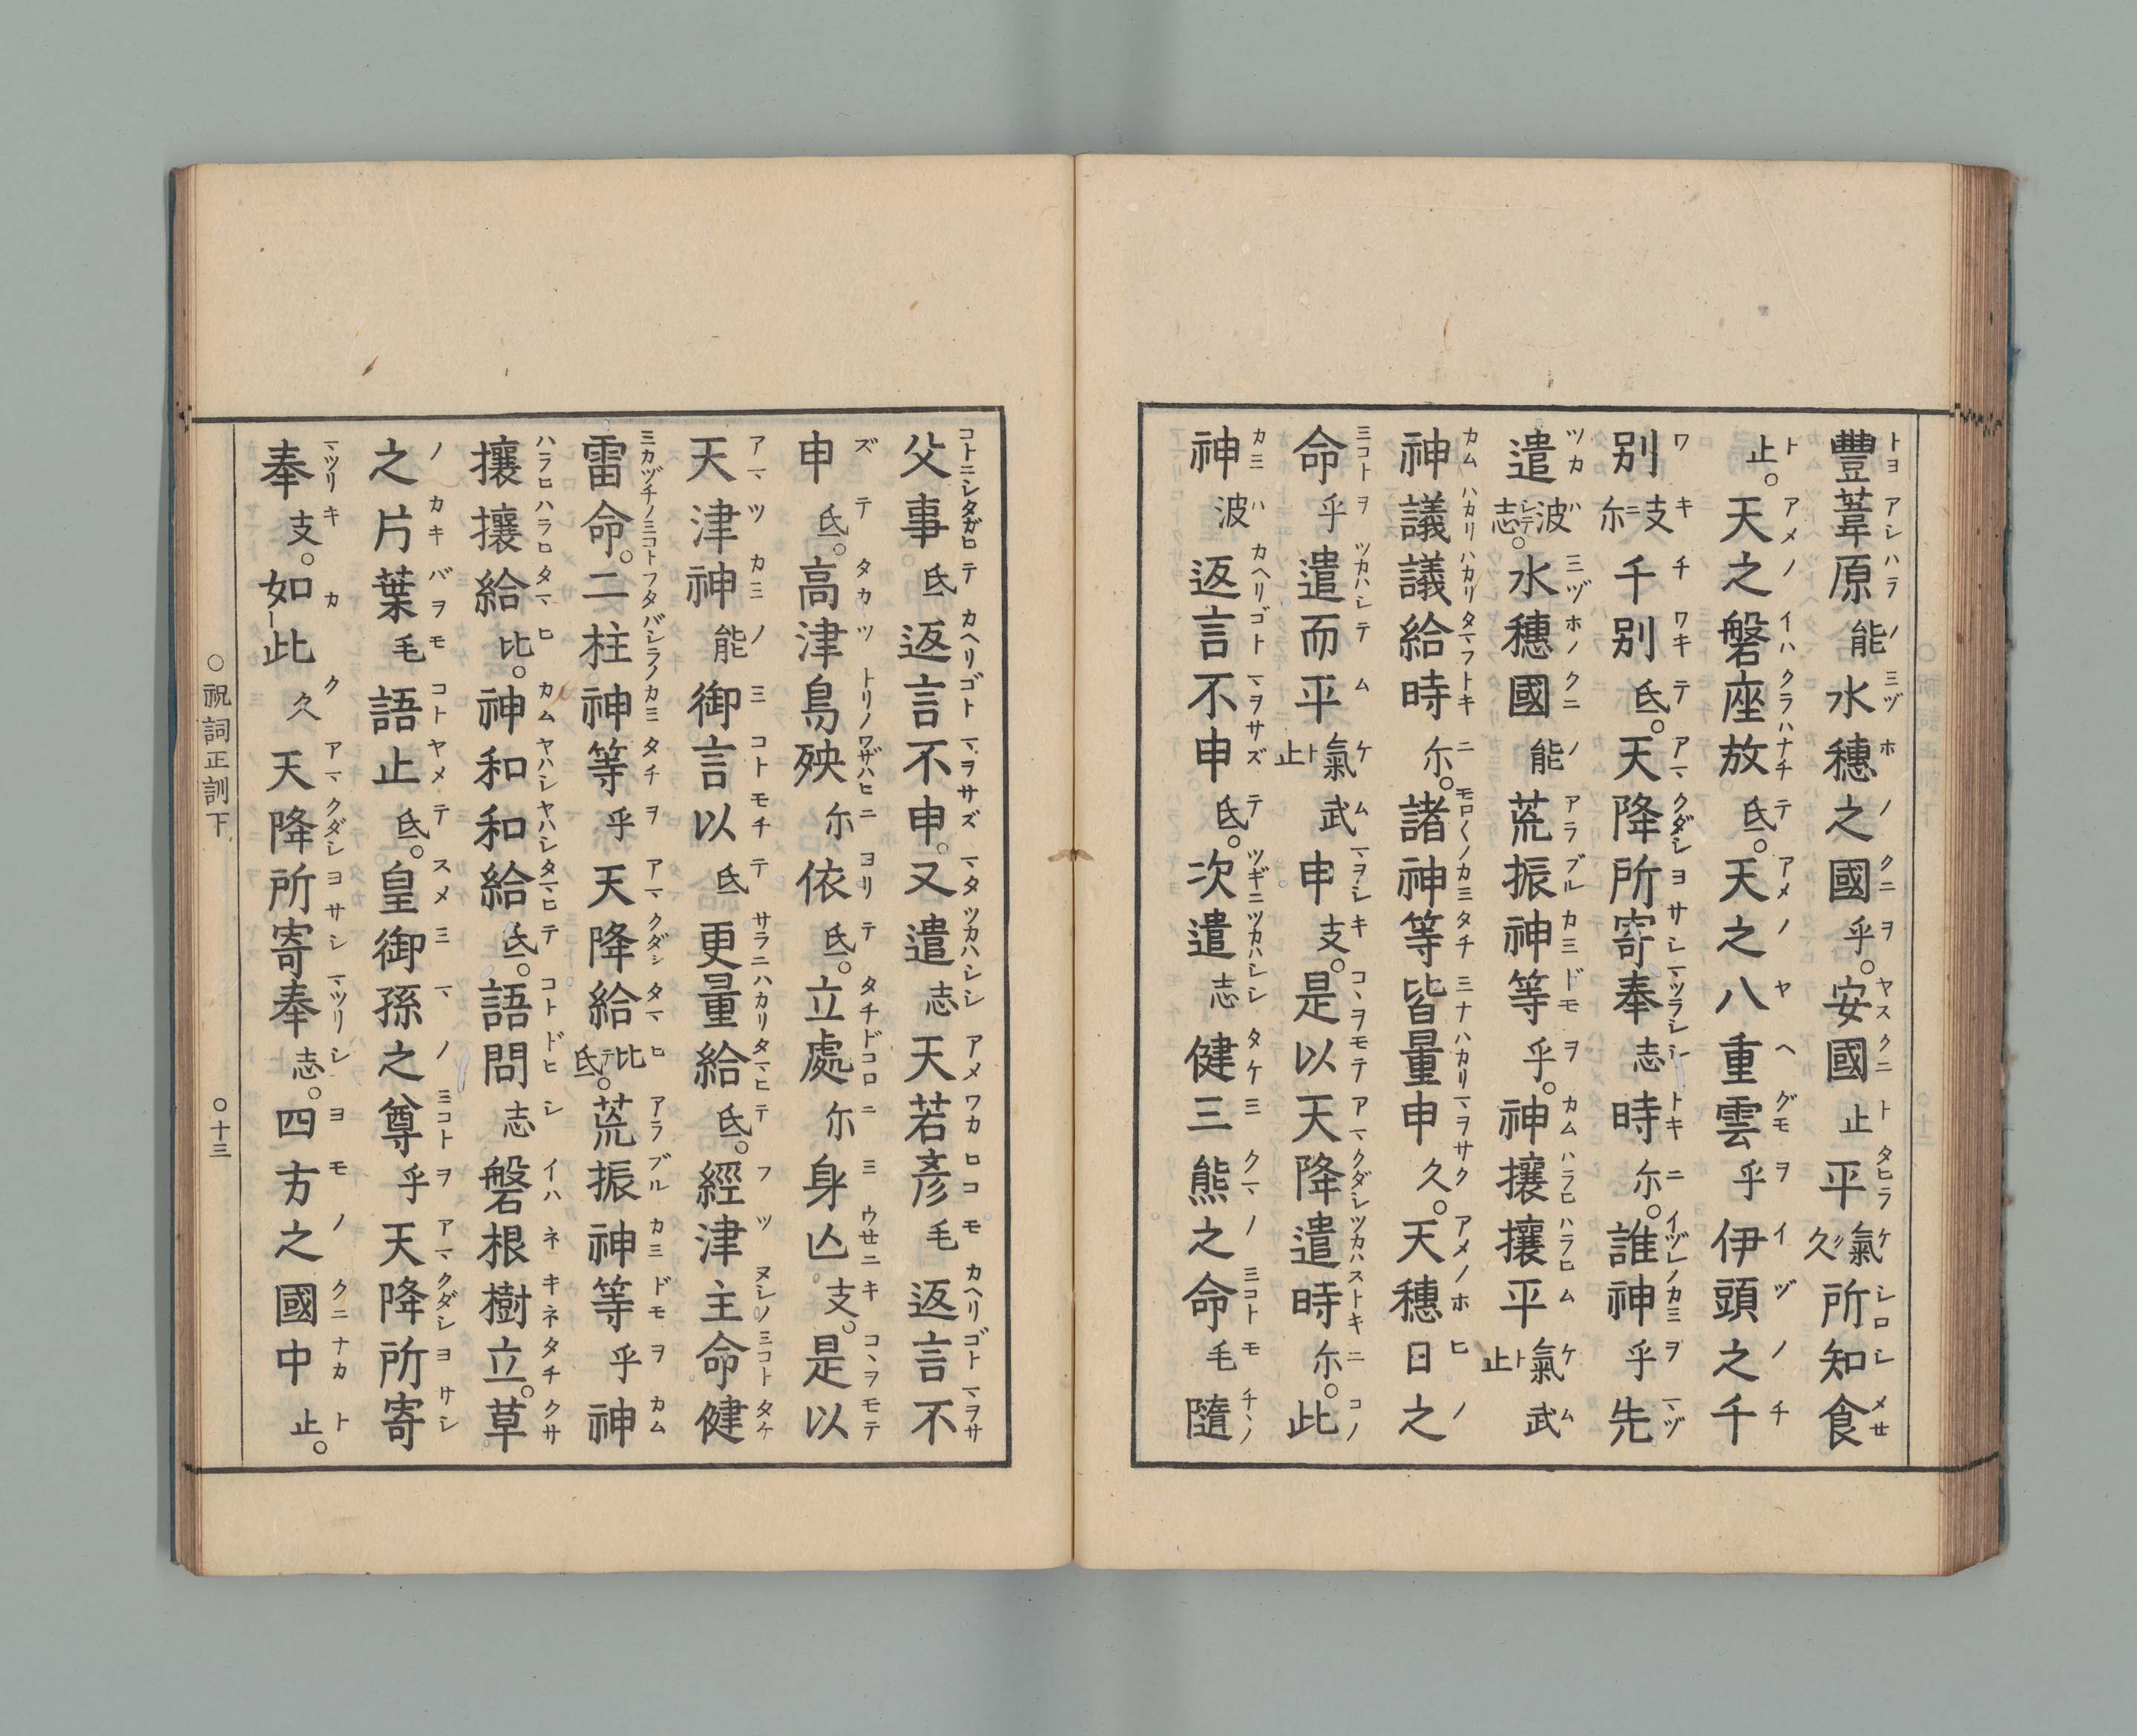 豐葦原能水穗之國乎。安國止平氣久所知食
止。天之磐座放氐。天之八重雲乎伊頭之千
別支尓千別氐。天降所寄奉志時尓。誰神乎先
遣波志。水穗國能荒振神等乎。神攘攘平氣止武
神議議給時尓。諸神等皆量申久。天穗日之
命乎遣而平氣止武申支。是以天降遣時尓。此
神波返言不申氐。次遣志健三熊之命毛隨
父事氐返言不申。又遣志天若彥毛返言不
申氐。高津鳥殃尓依氐。立處尓身亾支。是以
天津神能御言以氐更量給氐。經津主命健
雷命。二柱神等乎天降給比氐。荒振神等乎神
攘攘給比。神和和給氐。語問志磐根樹立。草
之片葉毛語止氐。皇御孫之尊乎天降所寄
奉支。如此久天降所寄奉志。四方之國中止。
○祝詞正訓下 ○十三